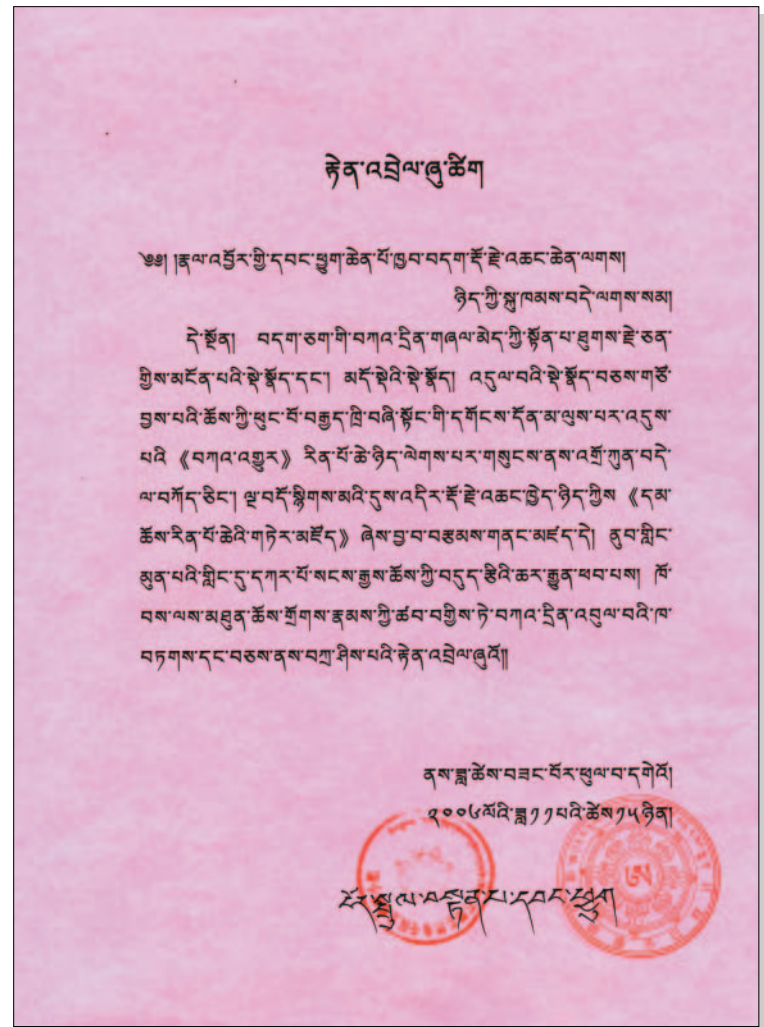 རྟེན་འབྲེལ་ཞུ་ཚིག
༄༅། །རྣལ་འབྱོར་གྱི་དབང་ཕྱུག་ཆེན་པོ་ཁྱབ་བདག་རྡོ་རྗེ་འཆང་ཆེན་ལགས།
ཉིད་ཀྱི་སྐུ་ཁམས་བདེ་ལགས་སམ།
དེ་སྔོན། བདག་ཅག་གི་བཀའ་དྲིན་གཞལ་མེད་ཀྱི་སྟོན་པ་ཐུགས་རྗེ་ཅན་
གྱིས་མངོན་པའི་སྡེ་སྣོད་དང་། མདོ་སྡེའི་སྡེ་སྣོད། འདུལ་བའི་སྡེ་སྣོད་བཅས་གཙོ་
བྱས་པའི་ཆོས་ཀྱི་ཕུང་པོ་བརྒྱད་ཁྲི་བཞི་སྟོང་གི་དགོངས་དོན་མ་ལུས་པར་འདུས་
པའི 《བཀའ་འགྱུར》 རིན་པོ་ཆེ་ཉིད་ལེགས་པར་གསུངས་ནས་འགྲོ་ཀུན་བདེ་
ལ་བཀོད་ཅིང་། ལྔ་བདོ་སྙིགས་མའི་དུས་འདིར་རྡོ་རྗེ་འཆང་ཁྱེད་ཉིད་ཀྱིས 《དམ་
ཆོས་རིན་པོ་ཆེའི་གཏེར་མཛོད》 ཞེས་བྱ་བ་བརྩམས་གནང་མཛད་དེ། ནུབ་གླིང་
མུན་པའི་གླིང་དུ་དཀར་པོ་སངས་རྒྱས་ཆོས་ཀྱི་བདུད་རྩིའི་ཆར་རྒྱུན་ཕབ་པས། ཁོ་
བས་ལས་མཐུན་ཆོས་གྲོགས་རྣམས་ཀྱི་ཚབ་བགྱིས་ཏེ་བཀའ་དྲིན་འབུལ་བའི་ཁ་
བཏགས་དང་བཅས་ནས་བཀྲ་ཤིས་པའི་རྟེན་འབྲེལ་ཞུའོ༎
ནས་ཟླ་ཚེས་བཟང་པོར་ཕུལ་བ་དགེའོ།
༢༠༠༦ལོའི་ཟླ༡༡པའི་ཚེས༡༥ཉིན།
ངོར་སྤྲུལ་བསྟན་པ་དབང་ཕྱུག
ཨ